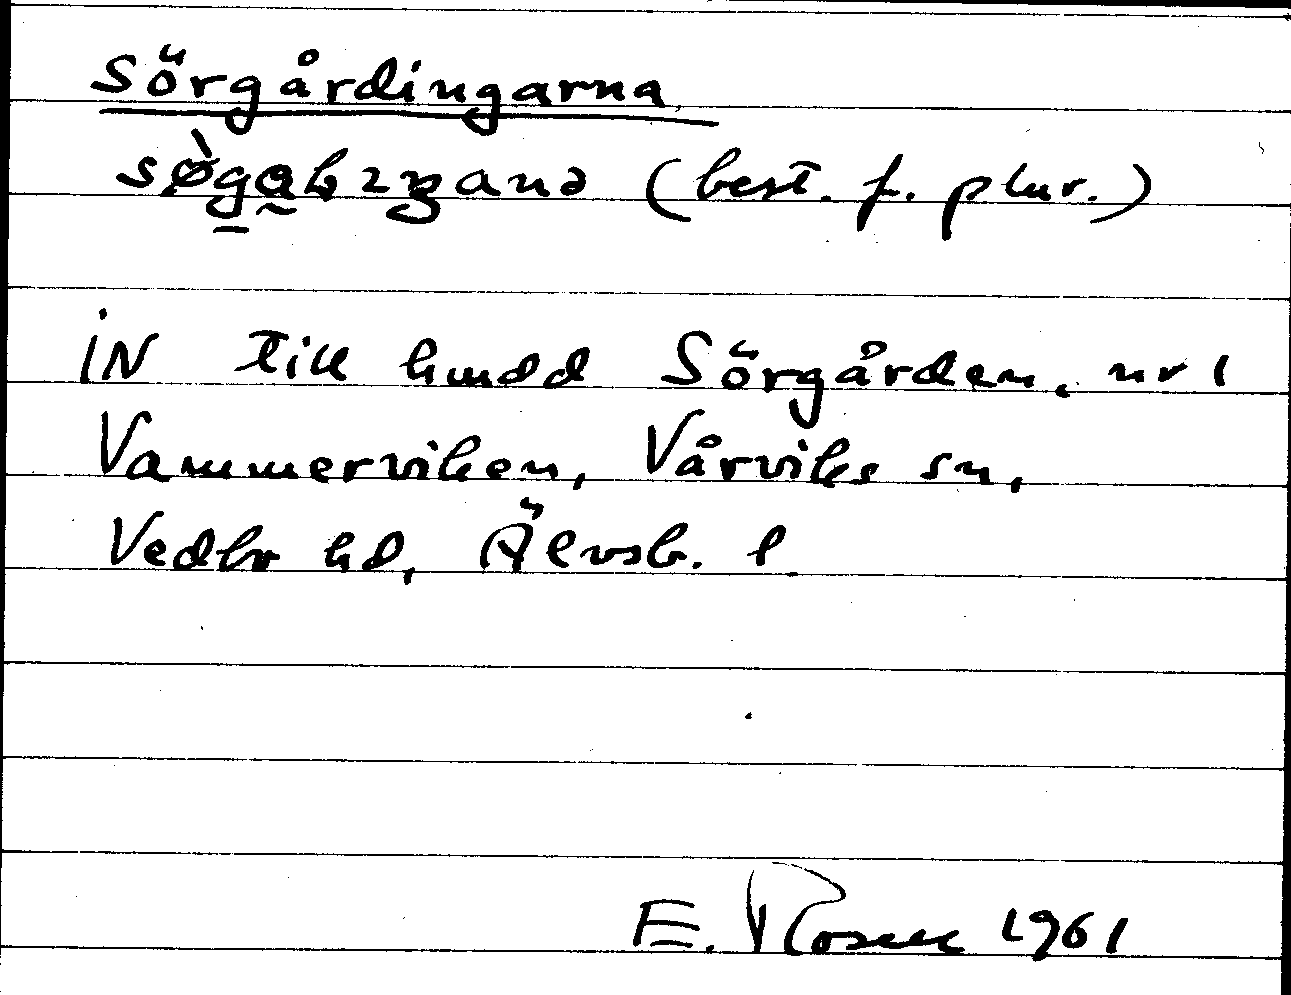 Sörgårdingarna
(best. f. plur.)
IN till hmdd Sörgården, nr 1
Vammerviken, Vårviks sn,
Vedbo hd, Älvsb. l
E. Rosell 1961